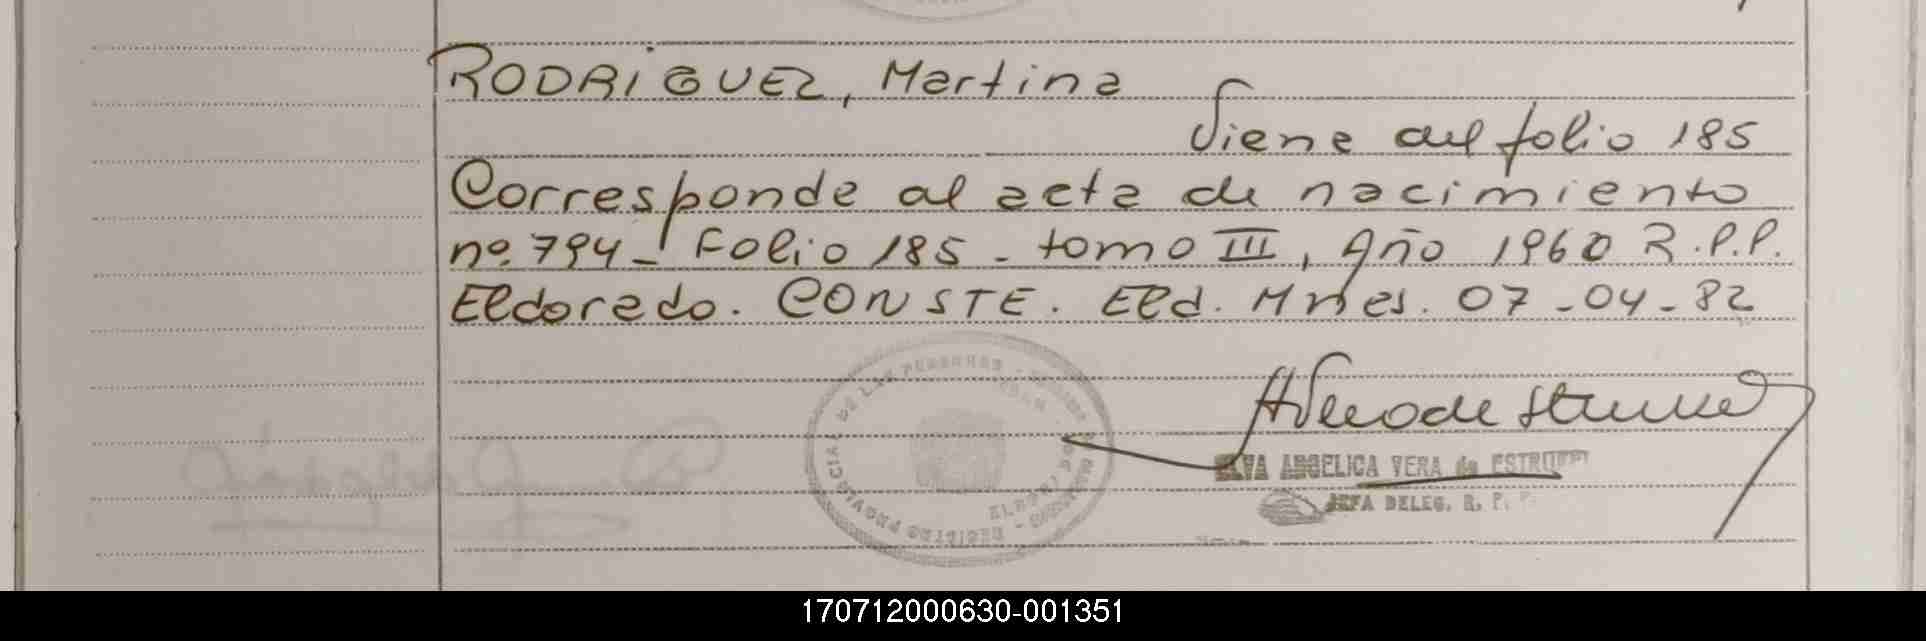 RODRIGUEZ, Martina
Viene del folio 185
Corresponde al acta de nacimiento
nº 794 - Folio 185 - tomo III, Año 1960 R.P.P.
Eldorado. CONSTE. Eld. Mnes. 07-04-82
REGISTRO PROVINCIAL DE LAS PERSONAS
ELVA ANGELICA VERA de
JEFA DELEG. R. P. P.
170712000630-001351